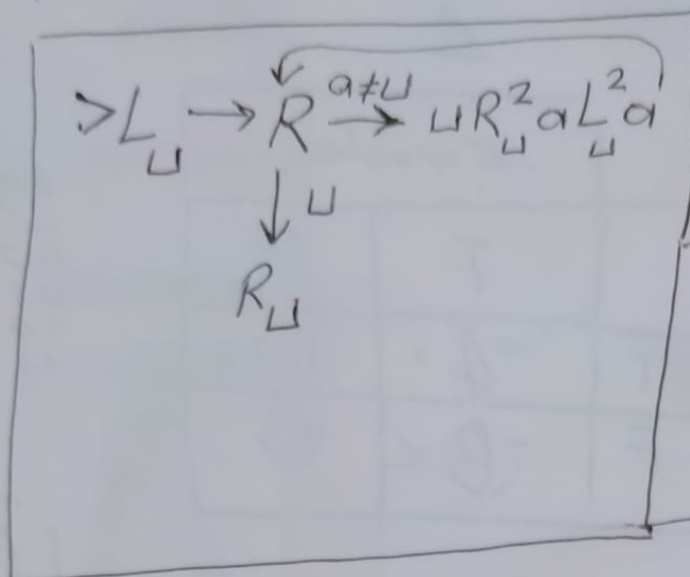 >L⊔ → R a≠⊔ → ⊔R²⊔aL²⊔a
↓ ⊔
R⊔